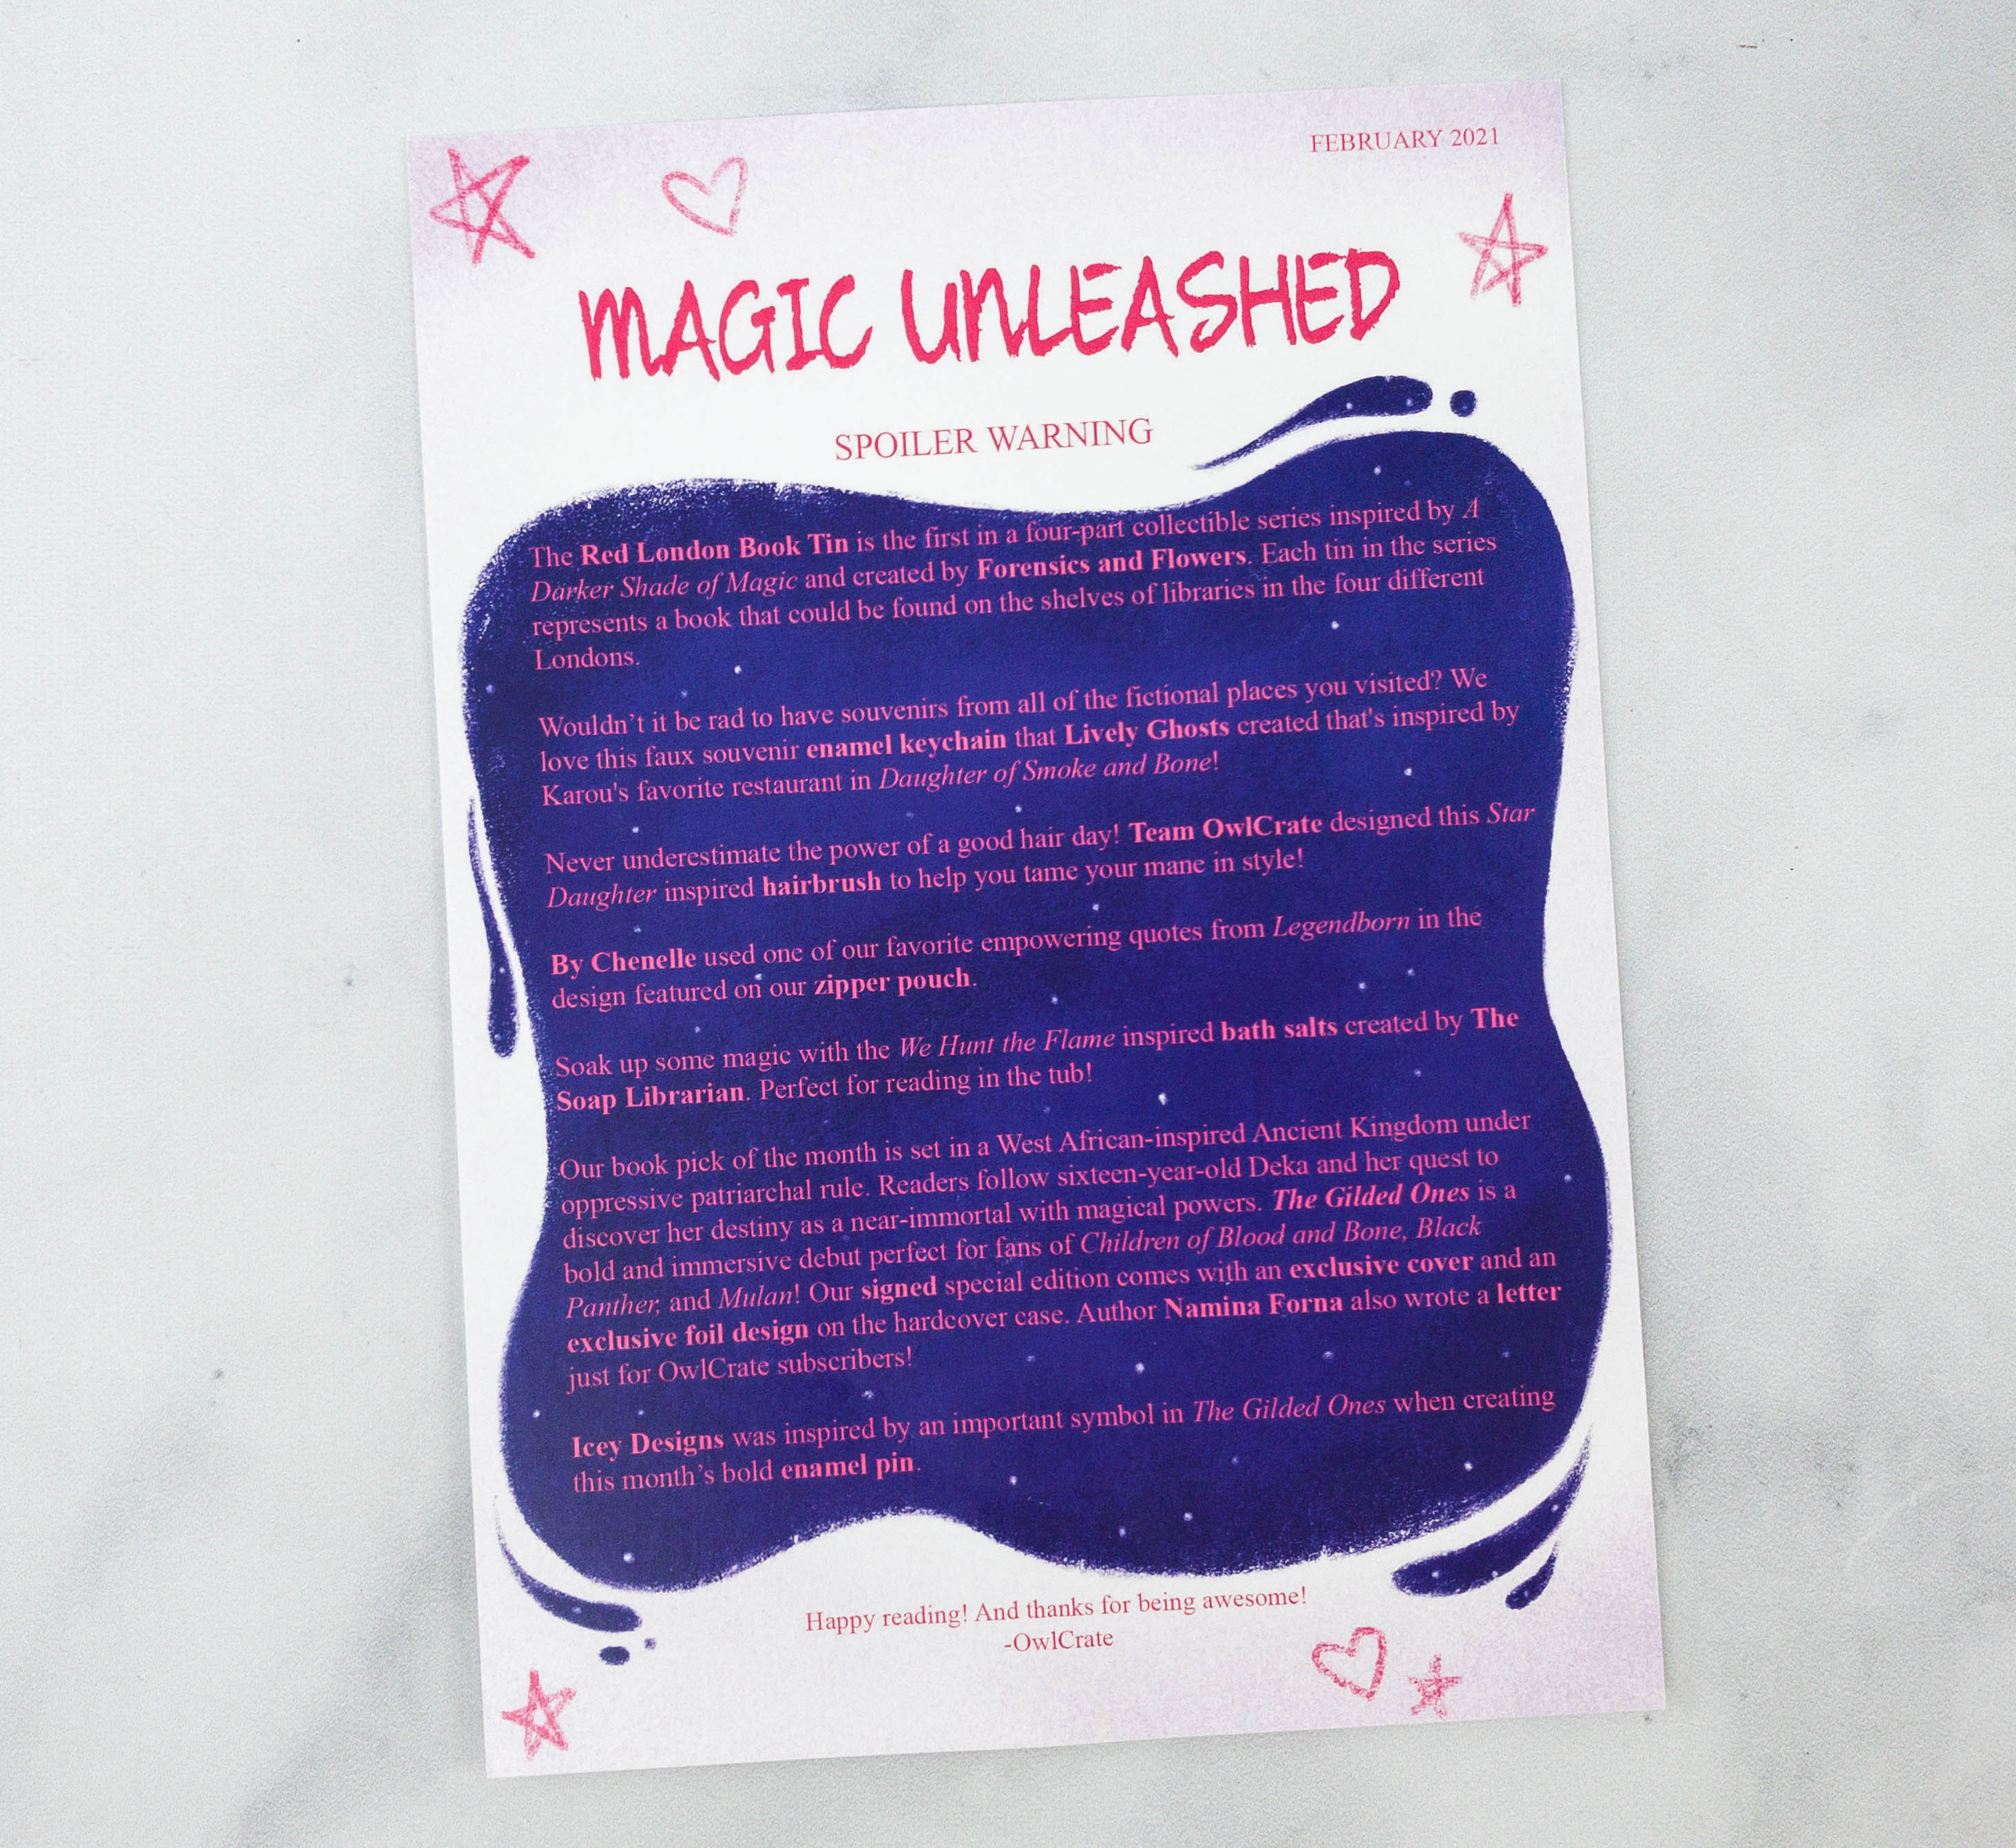 FEBRUARY 2021
MAGIC UNLEASHED
SPOILER WARNING
The Red London Book Tin is the first in a four-part collectible series inspired by A
Darker Shade of Magic and created by Forensics and Flowers. Each tin in the series
represents a book that could be found on the shelves of libraries in the four different
Londons.
Wouldn’t it be rad to have souvenirs from all of the fictional places you visited? We
love this faux souvenir enamel keychain that Lively Ghosts created that's inspired by
Karou's favorite restaurant in Daughter of Smoke and Bone!
Never underestimate the power of a good hair day! Team OwlCrate designed this Star
Daughter inspired hairbrush to help you tame your mane in style!
By Chenelle used one of our favorite empowering quotes from Legendborn in the
design featured on our zipper pouch.
Soak up some magic with the We Hunt the Flame inspired bath salts created by The
Soap Librarian. Perfect for reading in the tub!
Our book pick of the month is set in a West African-inspired Ancient Kingdom under
oppressive patriarchal rule. Readers follow sixteen-year-old Deka and her quest to
discover her destiny as a near-immortal with magical powers. The Gilded Ones is a
bold and immersive debut perfect for fans of Children of Blood and Bone, Black
Panther, and Mulan! Our signed special edition comes with an exclusive cover and an
exclusive foil design on the hardcover case. Author Namina Forna also wrote a letter
just for OwlCrate subscribers!
Icey Designs was inspired by an important symbol in The Gilded Ones when creating
this month’s bold enamel pin.
Happy reading! And thanks for being awesome!
-OwlCrate